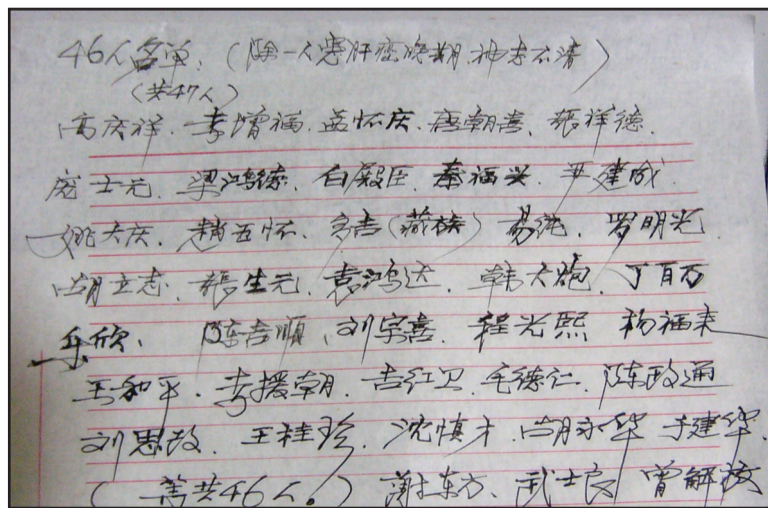 46人名单：（除一人患肝癌晚期、神志不清）
（共47人）
高庆祥、李增福、孟怀庆、唐朝喜、张祥德、
庞士元、梁鸿德、白殿臣、秦福兴、尹建成
姚大庆、赵五怀、多吉（藏族）易纯、罗明光
胡立志、张生元、袁鸿达、韩大炮、丁百万
乐欣、陈吉顺、刘宗喜、程光熙 杨福来
王和平、李援朝、吉红卫、毛德仁、陈政通
刘思敌、王桂珍、沈慎才、胡永华 于建华、
（共46人。）谢东方、武士良 曾解放